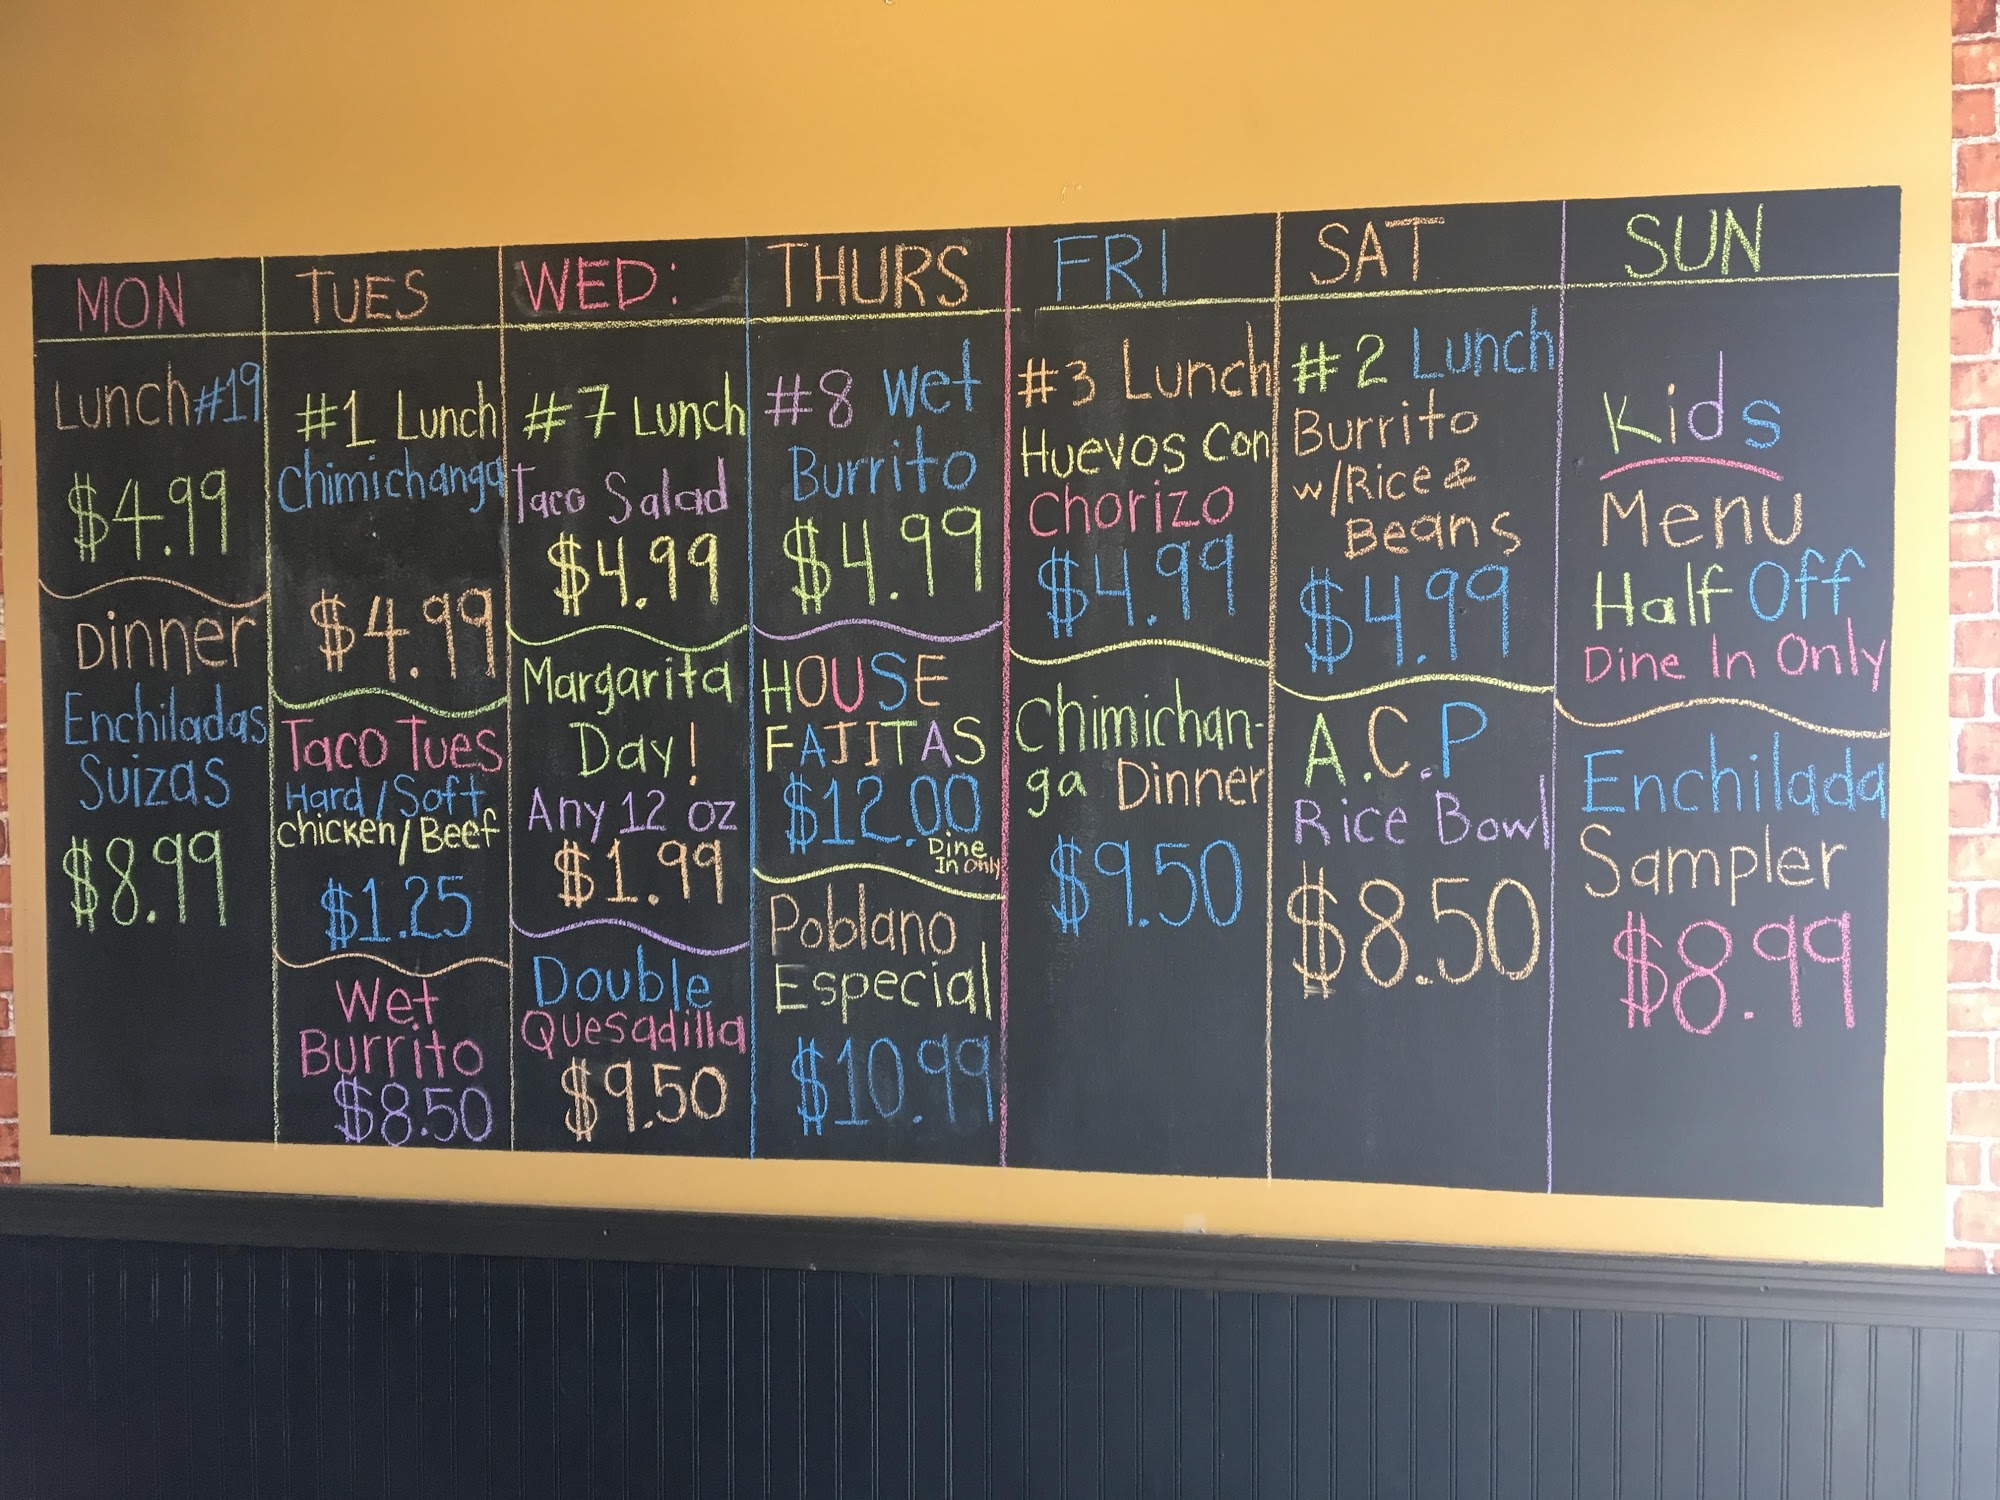 MON
Lunch #19
$4.99
Dinner
Enchiladas
Suizas
$8.99
TUES
#1 Lunch
Chimichanga
$4.99
Taco Tues
Hard/Soft
chicken/Beef
$1.25
Wet
Burrito
$8.50
WED:
#7 Lunch
Taco Salad
$4.99
Margarita
Day!
Any 12 oz
$1.99
Double
Quesadilla
$9.50
THURS
#8 Wet
Burrito
$4.99
HOUSE
FAJITAS
$12.00
Dine
In Only
Poblano
Especial
$10.99
FRI
#3 Lunch
Huevos Con
Chorizo
$4.99
Chimichan-
ga Dinner
$9.50
SAT
#2 Lunch
Burrito
w/Rice &
Beans
$4.99
A.C.P
Rice Bowl
$8.50
SUN
Kids
Menu
Half Off
Dine In Only
Enchilada
Sampler
$8.99